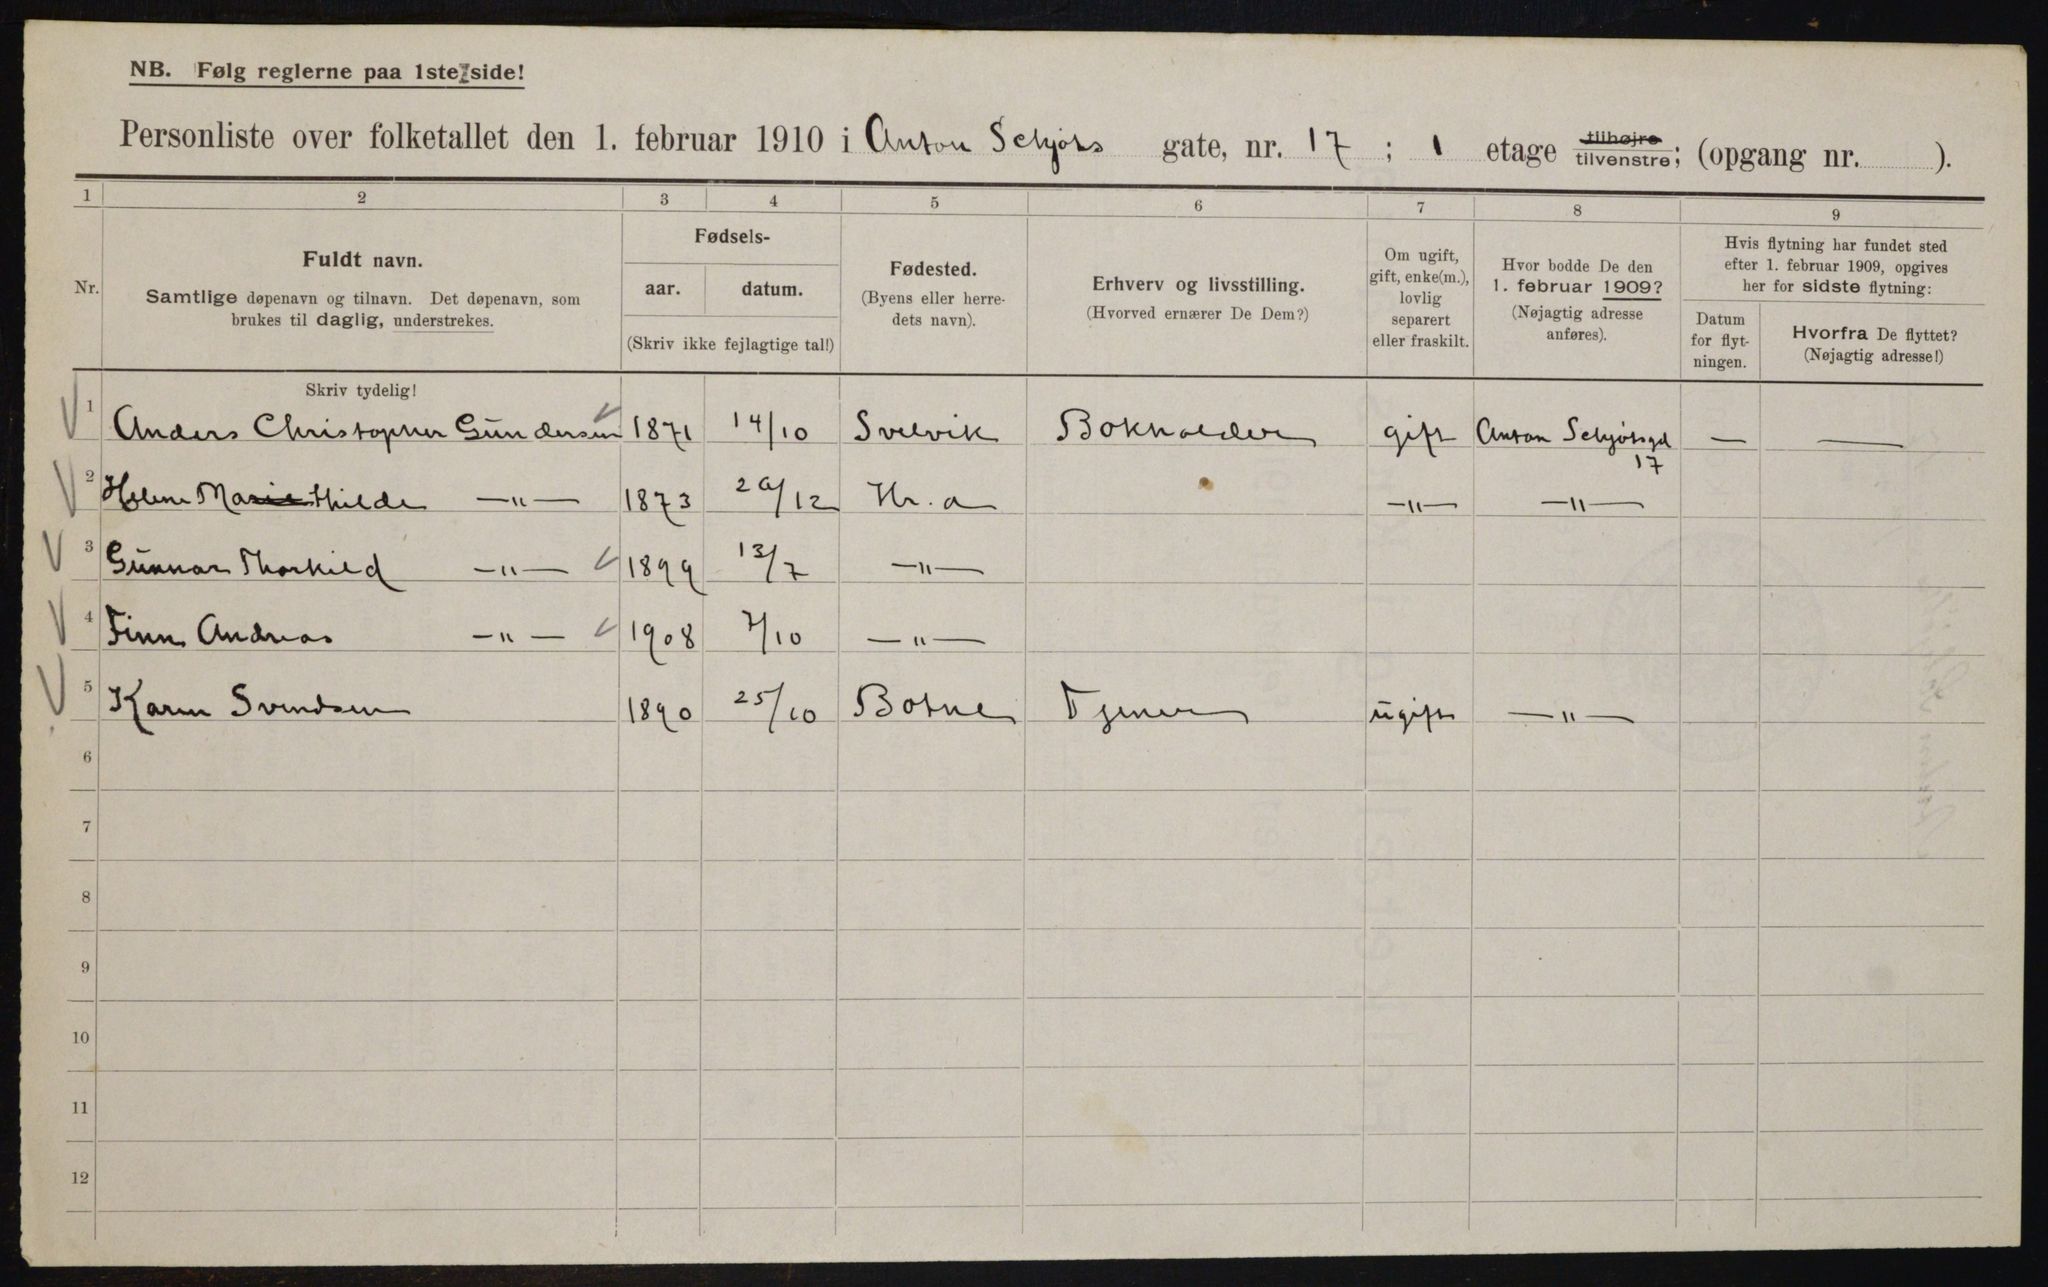 NB. Følg reglerne paa 1ste side!
Personliste over folketallet den 1. februar 1910 i Anton Schjøts gate, nr. 17 ; 1 etage tilhøjre tilvenstre; (opgang nr. ).
1 2 3 4 5 6 7 8 9
Nr.
Fuldt navn.
Samtlige døpenavn og tilnavn. Det døpenavn, som
brukes til daglig, understrekes.
Fødsels-
aar. datum.
(Skriv ikke fejlagtige tal!)
Fødested.
(Byens eller herre-
dets navn).
Erhverv og livsstilling.
(Hvorved ernærer De Dem?)
Om ugift,
gift, enke(m.),
lovlig
separert
eller fraskilt.
Hvor bodde De den
1. februar 1909?
(Nøjagtig adresse
anføres).
Hvis flytning har fundet sted
efter 1. februar 1909, opgives
her for sidste flytning:
Datum
for flyt-
ningen.
Hvorfra De flyttet?
(Nøjagtig adresse!)
Skriv tydelig!
1 Anders Christopher Gundersen 1871 14/10 Svelvik Bokholder gift Anton Schjøtsgd 17 — —
2 Helene Mathilde —"— 1873 /12 Kr. a —"— —"—
3 Gunnar Thorkild —"— 1899 13/7 —"—
4 Finn Andreas —"— 1908 7/10 —"—
5 Karen Svendsen 1890 25/10 Botne Tjener ugift —"—
6
7
8
9
10
11
12